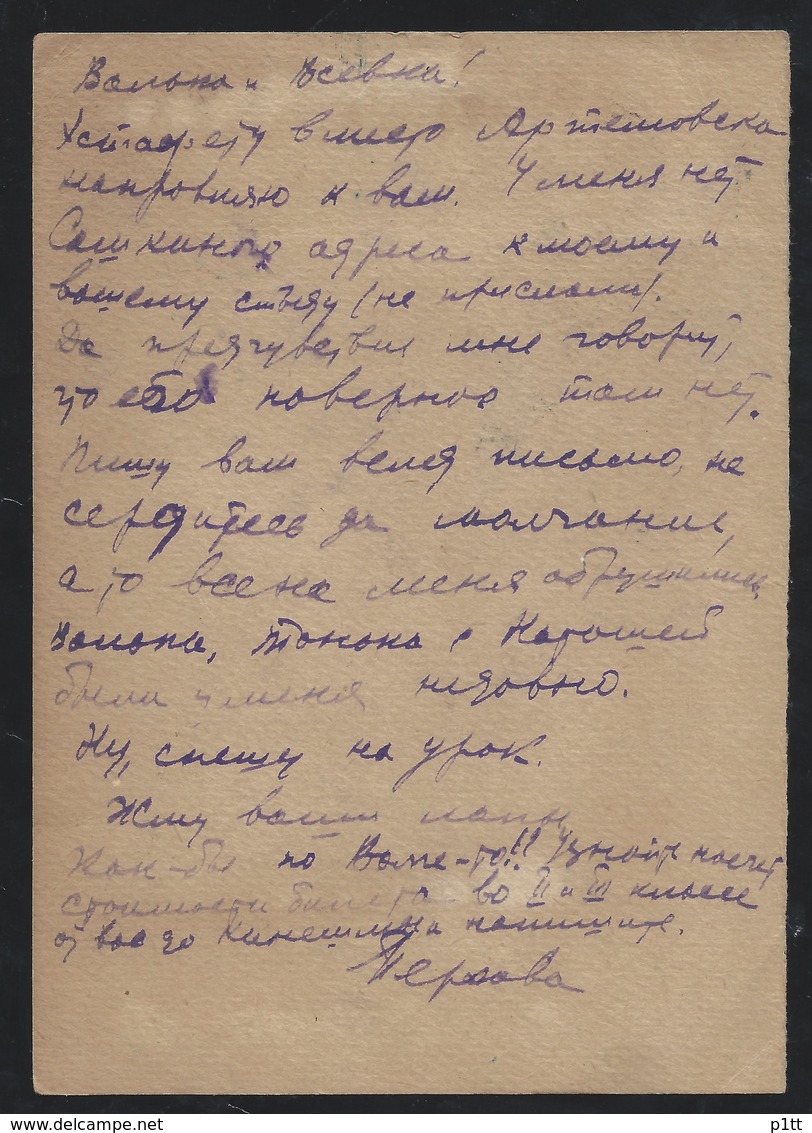 Валька и Всевка!
Эстафету вместо Артемовска
направляю к вам. У меня нет
Сашкиного адреса к моему и
вашему стыду (не прислали).
Да предчувствие мне говорит,
что его наверное там нет.
Пишу вам вслед письмо, не
сердитесь за молчание,
а то все на меня обрушились.
Валька, Тонька с Наташей
были у меня недавно.
Ну, спешу на урок.
Жму ваши лапы
Как-бы по Волге-то!! Узнайте насчет
стоимости билета во II и III классе
от вас до Кинешмы и напишите.
delcampe.net
p1tt